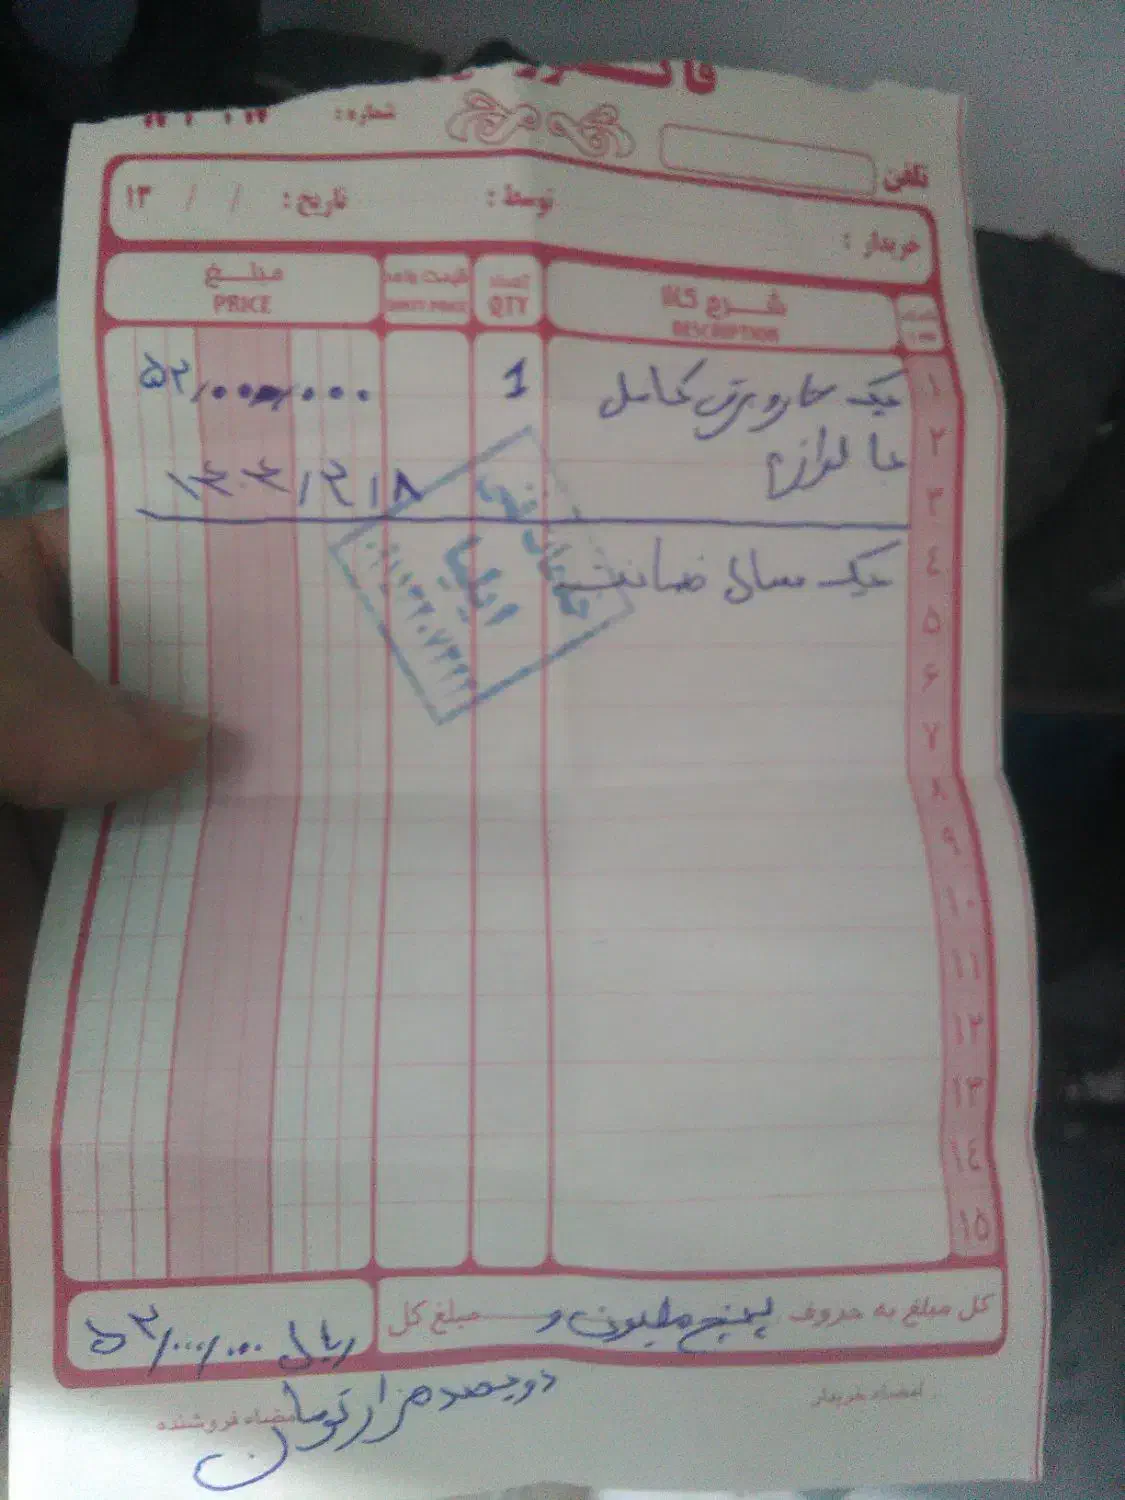 شماره :
تلفن
خریدار :
توسط :
تاریخ : / / ۱۳
شرح کالا
DESCRIPTION
تعداد
QTY
قیمت واحد
UNIT PRICE
مبلغ
PRICE
۱ یک جاروبرقی کامل 1 ۵۲,۰۰۰,۰۰۰
۲ با لوازم
۳ ۱۴۰۴/۲/۱۸
۴ یک سال ضمانت
۵
۶
۷
۸
۹
۱۰
۱۱
۱۲
۱۳
۱۴
۱۵
ایلیا
کل مبلغ به حروف پنج ملیون و مبلغ کل ۵۲/۰۰۰/۰۰۰ ریال
دویصد هزار تومان
امضاء خریدار
امضاء فروشنده